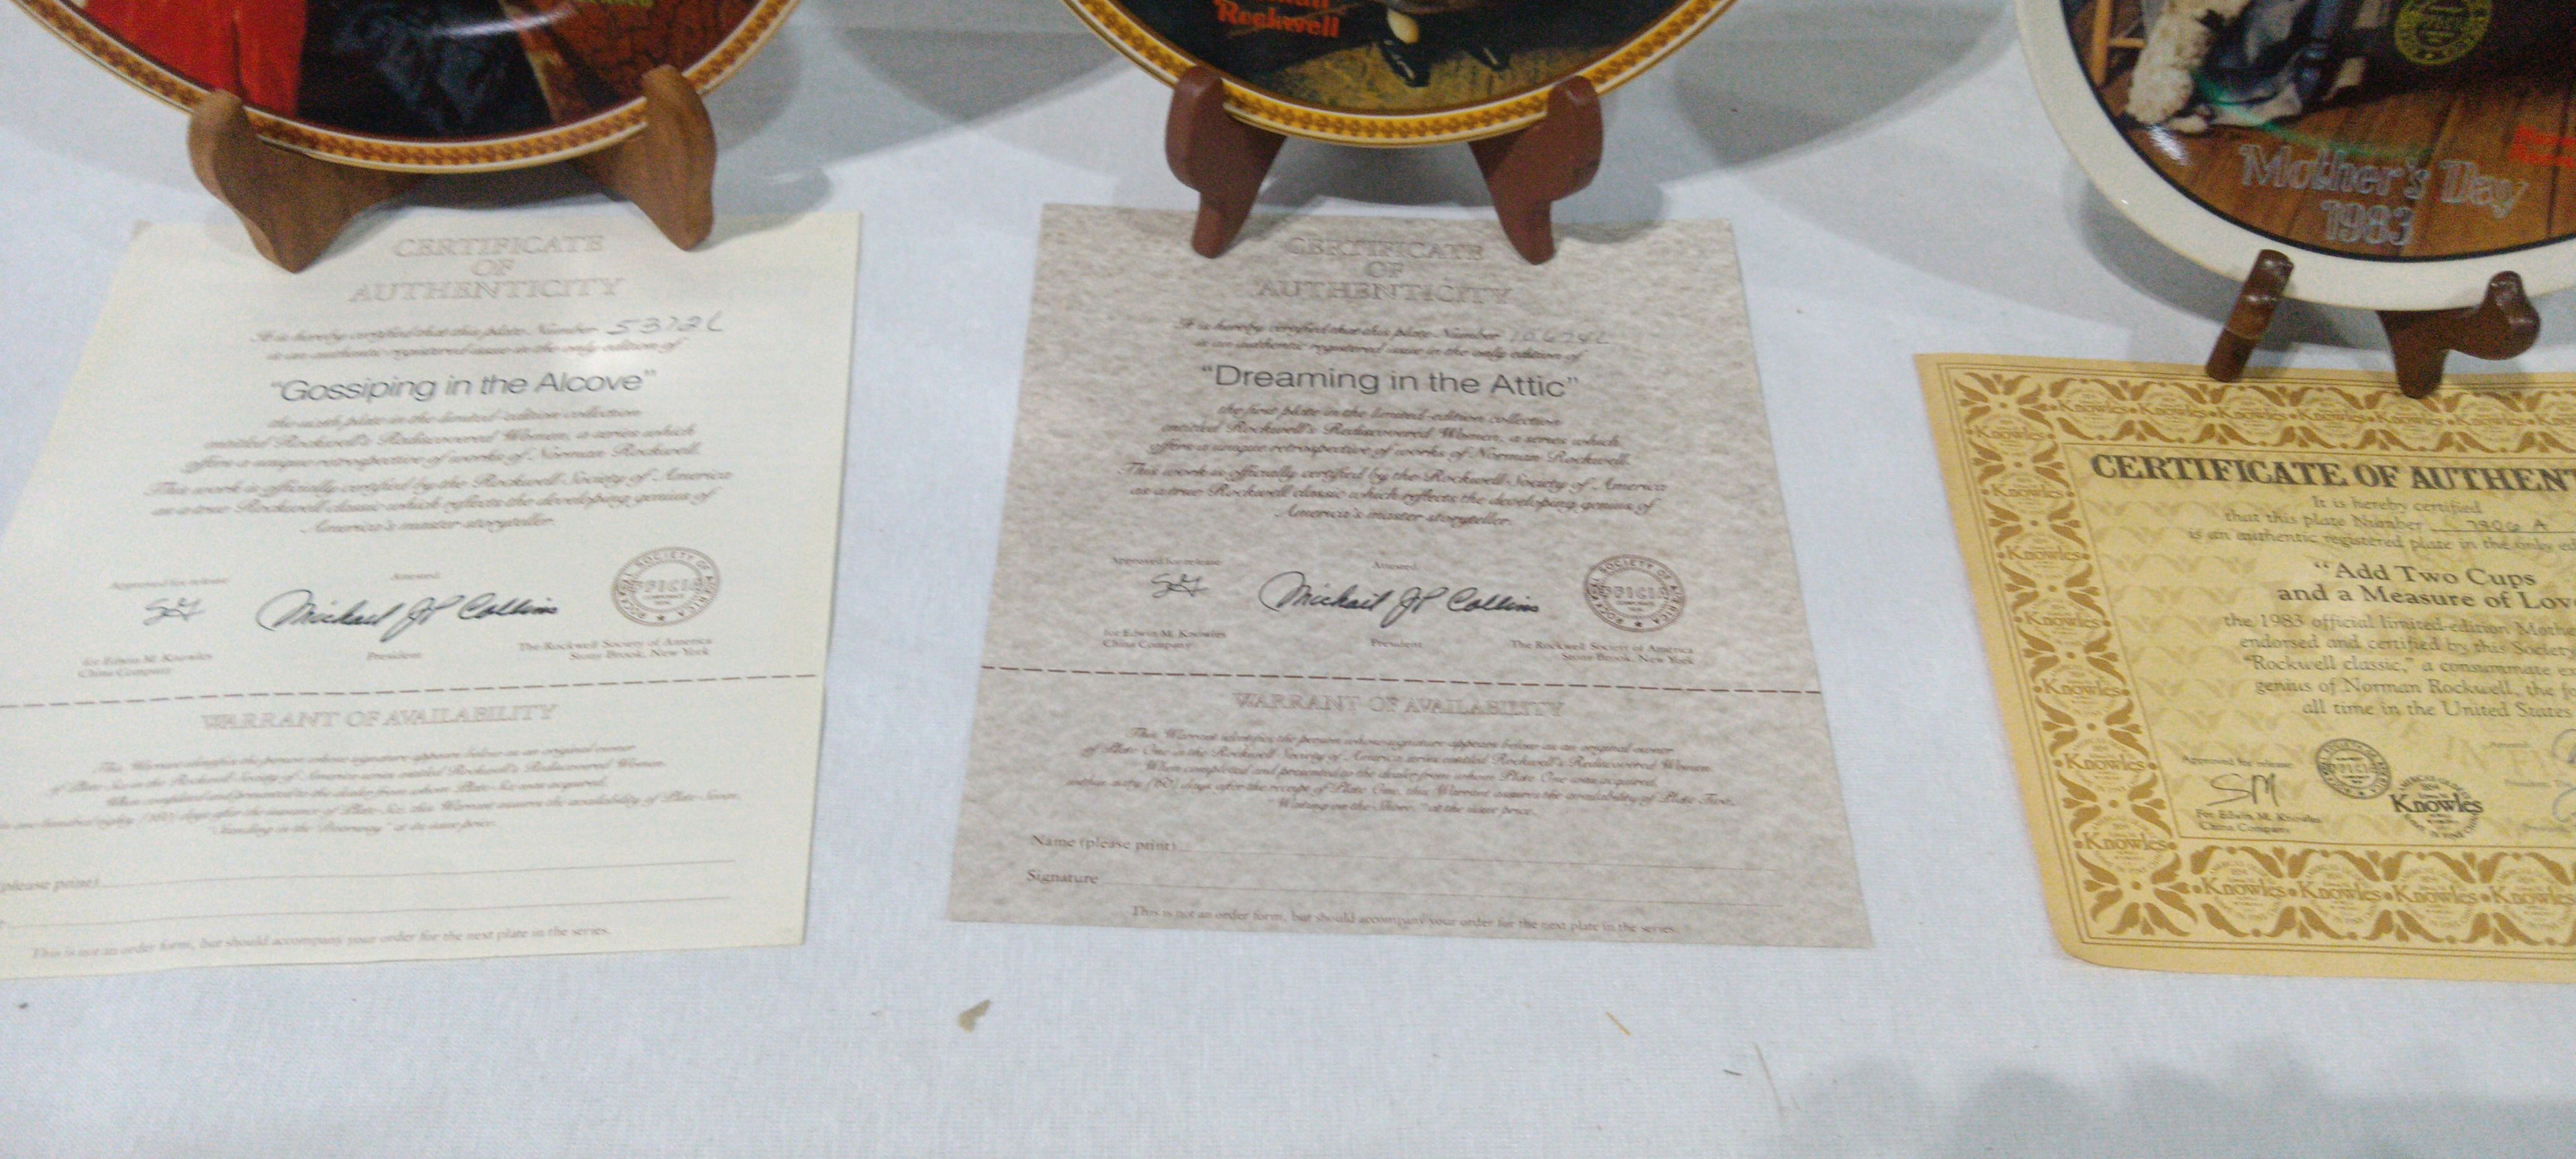 Rockwell
Mother's Day
1983
CERTIFICATE
OF
AUTHENTICITY
It is hereby certified that this plate Number
is an authentic registered issue in the only edition of
"Gossiping in the Alcove"
the sixth plate in the limited-edition collection
entitled Rockwell's Rediscovered Women, a series which
offers a unique retrospective of works of Norman Rockwell.
This work is officially certified by the Rockwell Society of America
as a true Rockwell classic which reflects the developing genius of
America's master storyteller.
Approved for release: Attested:
Michael JP Collins
for Edwin M. Knowles
China Company
President
The Rockwell Society of America
Stony Brook, New York
WARRANT OF AVAILABILITY
This Warrant identifies the person whose signature appears below as an original owner
of Plate Six in the Rockwell Society of America series entitled Rockwell's Rediscovered Women.
When completed and presented to the dealer from whom Plate Six was acquired,
one hundred eighty (180) days after the issuance of Plate Six, this Warrant assures the availability of Plate Seven,
"Standing in the Doorway," at its issue price.
(please print)
This is not an order form, but should accompany your order for the next plate in the series.
CERTIFICATE
OF
AUTHENTICITY
It is hereby certified that this plate Number
is an authentic registered issue in the only edition of
"Dreaming in the Attic"
the first plate in the limited-edition collection
entitled Rockwell's Rediscovered Women, a series which
offers a unique retrospective of works of Norman Rockwell.
This work is officially certified by the Rockwell Society of America
as a true Rockwell classic which reflects the developing genius of
America's master storyteller.
Approved for release: Attested:
Michael JP Collins
for Edwin M. Knowles
China Company
President
The Rockwell Society of America
Stony Brook, New York
WARRANT OF AVAILABILITY
This Warrant identifies the person whose signature appears below as an original owner
of Plate One in the Rockwell Society of America series entitled Rockwell's Rediscovered Women.
When completed and presented to the dealer from whom Plate One was acquired,
within sixty (60) days after the receipt of Plate One, this Warrant assures the availability of Plate Two,
"Waiting on the Shore," at the issue price.
Name (please print)
Signature
This is not an order form, but should accompany your order for the next plate in the series.
CERTIFICATE OF AUTHEN
It is hereby certified
that this plate Number 7806 A
is an authentic registered plate in the only
"Add Two Cups
and a Measure of Lov
the 1983 official limited-edition Moth
endorsed and certified by this Society
"Rockwell classic," a consummate
genius of Norman Rockwell, the
all time in the United States
Approved for release:
SM
For Edwin M. Knowles
China Company
Knowles
Knowles Knowles Knowles Knowles